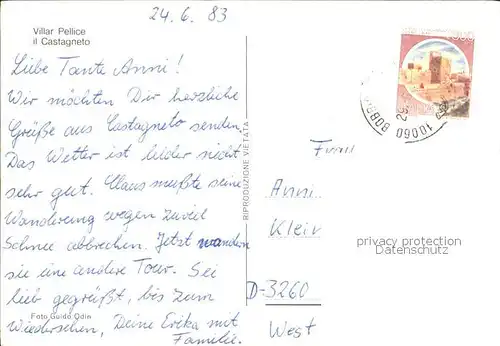 24.6.83
Villar Pellice
il Castagneto
Liebe Tante Anni!
Wir möchten Dir herzliche
Grüße aus Castagneto senden.
Das Wetter ist leider nicht
sehr gut. Claus mußte seine
Wanderung wegen zuviel
Schnee abbrechen. Jetzt wandern
sie eine andere Tour. Sei
lieb gegrüßt, bis zum
Wiedersehen, Deine Erika mit
Familie.
Foto Guido Odin
RIPRODUZIONE VIETATA
10060 BOBBIO
Frau
Anni
Klein
privacy protection
Datenschutz
D-3260
West